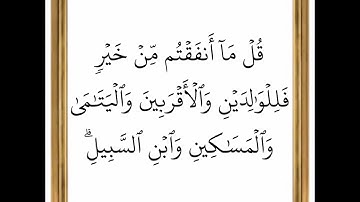 قُلۡ مَآ أَنفَقۡتُم مِّنۡ خَيۡرٖ
فَلِلۡوَٰلِدَيۡنِ وَٱلۡأَقۡرَبِينَ وَٱلۡيَتَٰمَىٰ
وَٱلۡمَسَٰكِينِ وَٱبۡنِ ٱلسَّبِيلِۗ